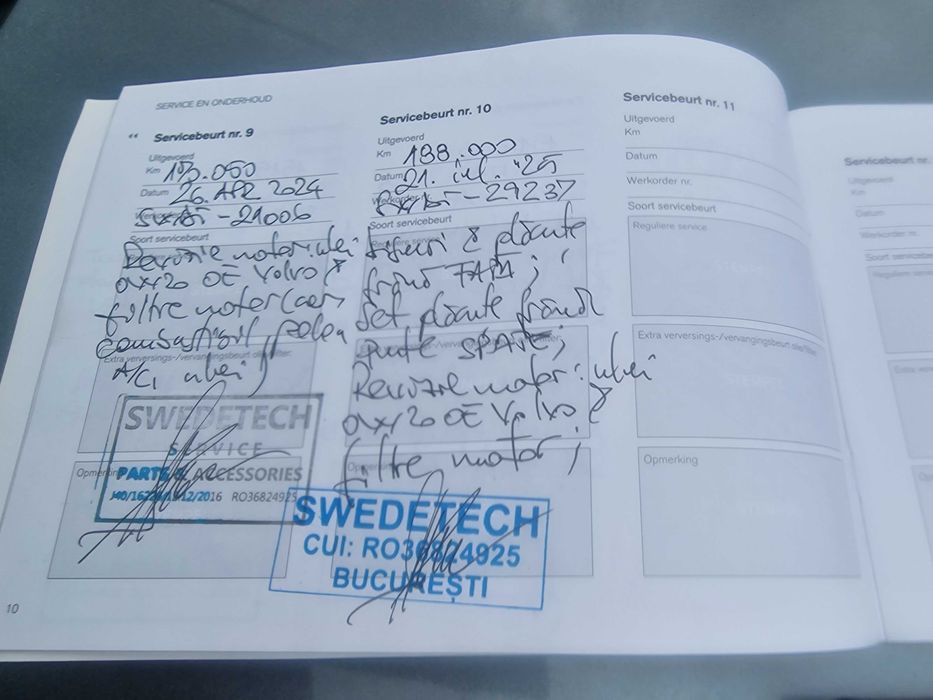 SERVICE EN ONDERHOUD
Servicebeurt nr. 9
Uitgevoerd
Km
Datum 26. APR 2024
-21006
Soort servicebeurt
Revizie motor: ulei
0W20 OE Volvo &
filtre motor (aer,
combustibil, polen
Extra verversings-/vervangingsbeurt olie/filter:
A/C, ulei)
SWEDETECH
SERVICE
Opmerking
PARTS & ACCESSORIES
2016 RO36824925
Servicebeurt nr. 10
Uitgevoerd
Km 188.000
Datum 21. iul. '25
Werkorder
-29237
Soort servicebeurt
Reguliere service
& plăcute
frână FAȚĂ;
Set plăcute frână
SPATE;
Revizie motor: ulei
0W20 OE Volvo &
filtre motor;
SWEDETECH
CUI: RO36824925
BUCUREȘTI
Servicebeurt nr. 11
Uitgevoerd
Km
Datum
Werkorder nr.
Soort servicebeurt
Reguliere service
Extra verversings-/vervangingsbeurt olie/filter:
Opmerking
Servicebeurt nr.
Uitgevoerd
Km
Datum
Werkorder nr.
Soort servicebeurt
Reguliere service
10